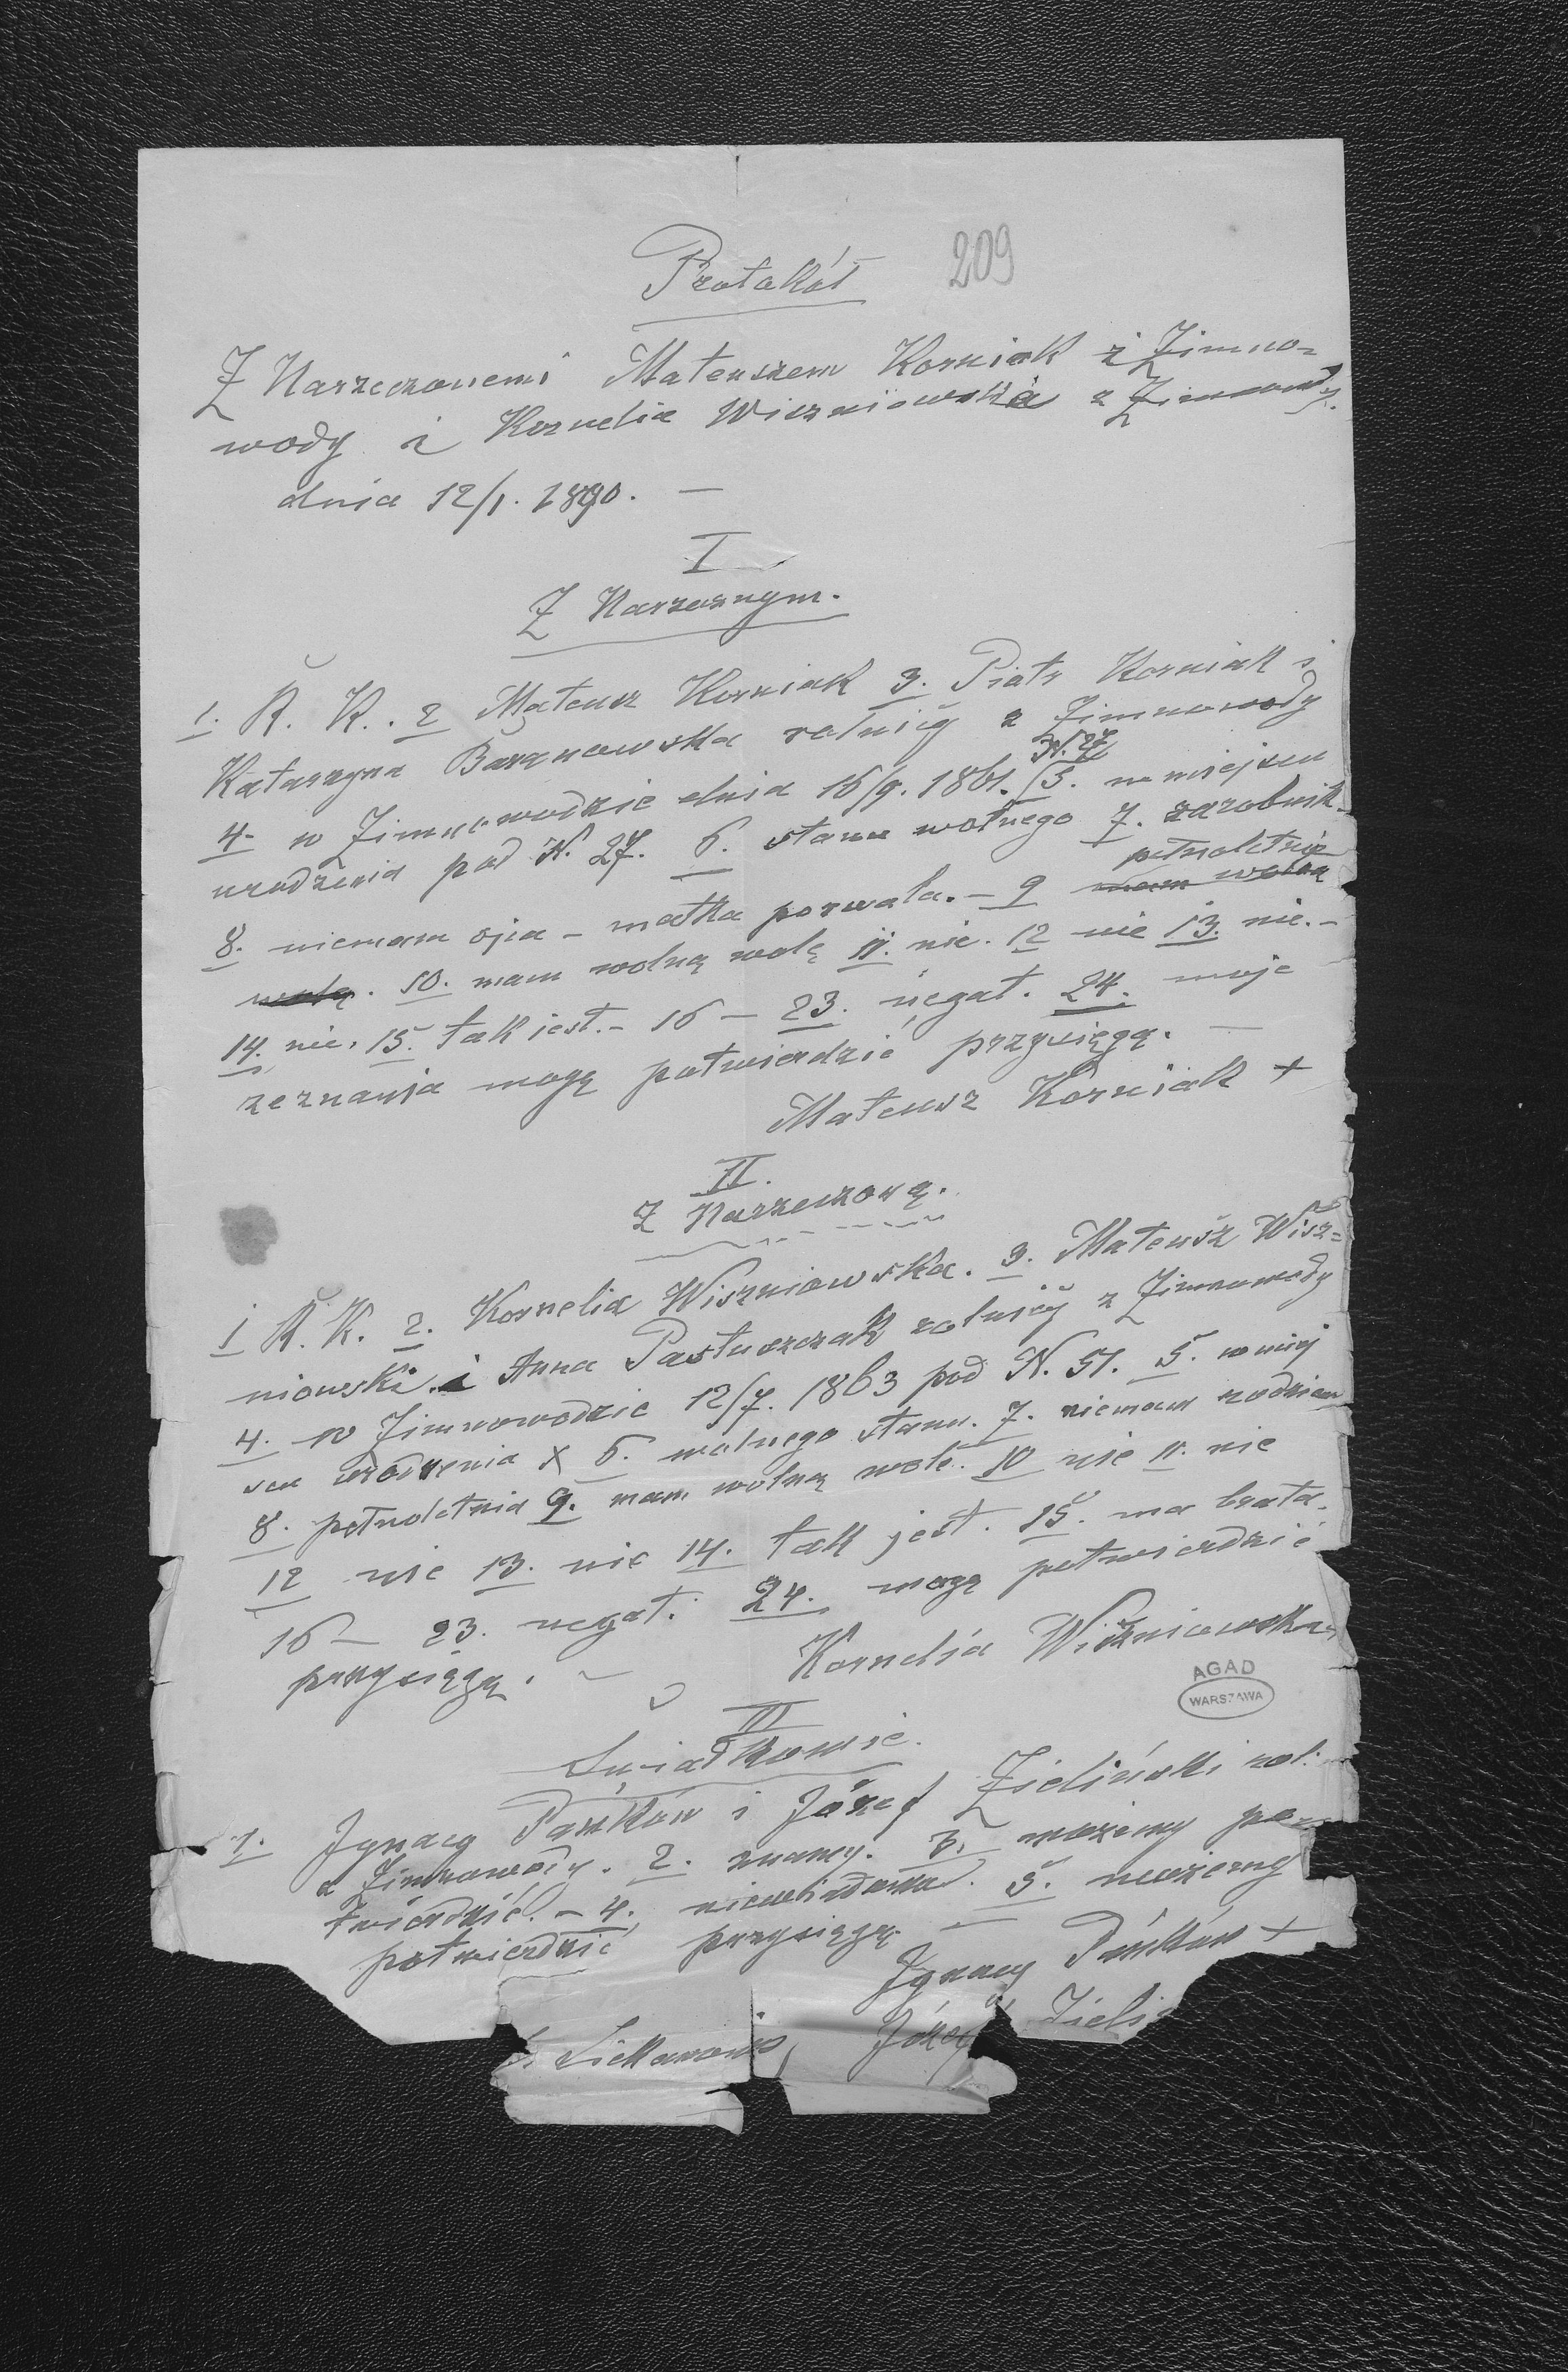 Protokół 209
Z Narzeczonemi Mateuszem Korniak z Zimno-
wody i Kornelia Wiszniowska z Zimnowody
dnia 12/1. 1890. —
I
Z Narzecznym.
1. R. K. 2 Mateusz Korniak 3. Piotr Korniak i
Katarzyna Baranowska rolnicy z Zimnowody
4. w Zimnowodzie dnia 16/9. 1861. N. 27 5. w miejscu
urodzenia pod N. 27. 6. stanu wolnego 7. zarobnik
8. niemam ojca – matka pozwala. – 9 mam wolną pełnoletni
wolą. 10. mam wolną wolę 11. nie. 12 nie 13. nie. –
14. nie. 15. tak jest. – 16 – 23. negat. 24. moje
zeznania mogę potwierdzić przysięgą. —
Mateusz Korniak +
II.
Z Narzeczoną.
1 R. K. 2. Kornelia Wiszniowska. 3. Mateusz Wisz=
niowski i Anna Pastuszczak rolnicy z Zimnowody
4. w Zimnowodzie 12/7. 1863 pod N. 51. 5. w miej
scu urodzenia x 6. wolnego stanu. 7. niemam rodziców
8. pełnoletnia 9. mam wolną wolę. 10 nie 11. nie
12 nie 13. nie 14. tak jest. 15. ma brata.
16 – 23. negat. 24. mogę potwierdzić
przysięgą. –
Kornelia Wiszniowska
AGAD
WARSZAWA
III
Świadkowie.
1. Ignacy Pańków i Józef Zieliński rol.
z Zimnowody. 2. znamy. 3. możemy po-
twierdzić. – 4. niewiadoma. 5. możemy
potwierdzić przysięgą —
Ignacy Pańków +
Józef Zieli